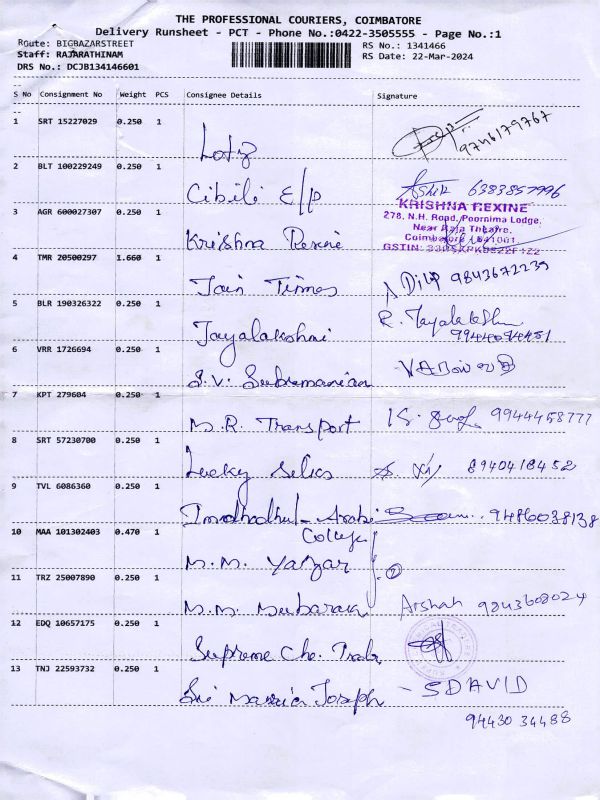 THE PROFESSIONAL COURIERS, COIMBATORE
Delivery Runsheet - PCT - Phone No.:0422-3505555 - Page No.:1
Route: BIGBAZARSTREET
RS No.: 1341466
Staff: RAJARATHINAM
RS Date: 22-Mar-2024
DRS No.: DCJB134146601
S No Consignment No Weight PCS Consignee Details Signature
1 SRT 15227029 0.250 1
9746179767
2 BLT 100229249 0.250 1
Cibili E/P 6383857996
3 AGR 600027307 0.250 1
Krishna Rexine
KRISHNA REXINE
278, N.H. Road, Poornima Lodge,
Near Raja Theatre,
Coimbatore - 641001
GSTIN:
4 TMR 20500297 1.660 1
Jain Times Dilip 9843672239
5 BLR 190326322 0.250 1
Jayalakshmi R. Jayalakshmi
6 VRR 1726694 0.250 1
S.V. Subramanian
7 KPT 279604 0.250 1
M.R. Transport 9944458777
8 SRT 57230700 0.250 1
Lucky Silks 8940418452
9 TVL 6086360 0.250 1
Arabi 9486038138
College
10 MAA 101302403 0.470 1
M.M. 2
11 TRZ 25007890 0.250 1
M.M. Mubarak Arshah 9843608024
12 EDQ 10657175 0.250 1
Supreme Che.
13 TNJ 22593732 0.250 1
Sri Maria Joseph - S DAVID
94430 34488